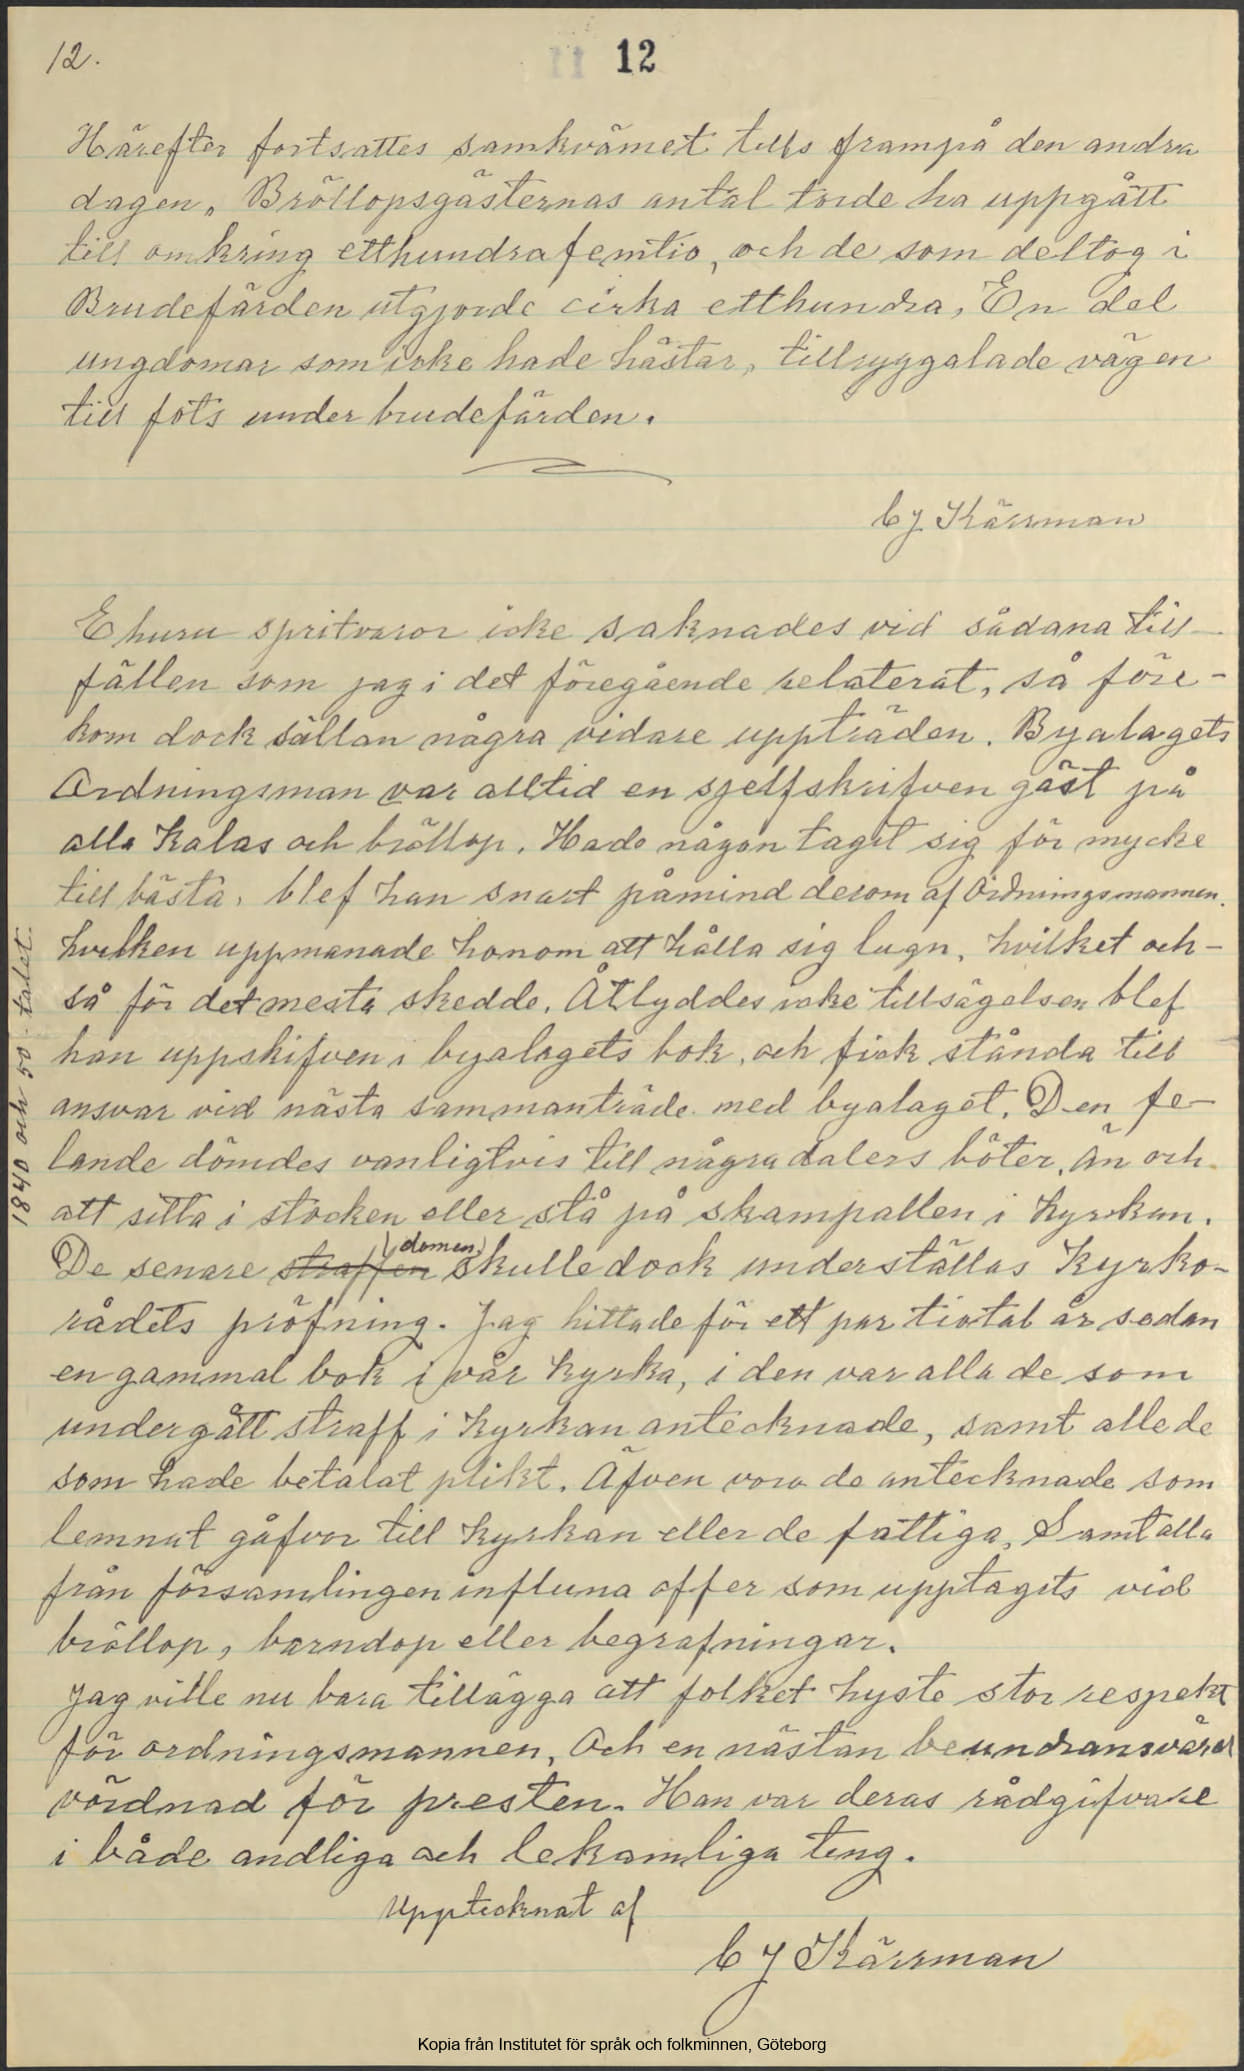 12.
12
Härefter fortsattes samkvämet tills frampå den andra
dagen. Bröllopsgästernas antal torde ha uppgått
till omkring etthundrafemtio, och de som deltog i
Brudefärden utgjorde cirka etthundra. En del
ungdomar som icke hade hästar, tillryggalade vägen
till fots under brudefärden.
C J Kärrman
Ehuru spritvaror icke saknades vid sådana till-
fällen som jag i det föregående relaterat, så före-
kom dock sällan några vidare uppträden. Byalagets
Ordningsman var alltid en sjelfskrifven gäst på
alla kalas och bröllop. Hade någon tagit sig för mycke
till bästa, blef han snart påmind derom af Ordningsmannen.
hvilken uppmanade honom att hålla sig lugn, hvilket och-
så för det mesta skedde. Åtlyddes icke tillsägelsen blef
han uppskifven i byalagets bok, och fick stånda till
ansvar vid nästa sammanträde med byalaget. Den fe-
lande dömdes vanligtvis till några dalers böter, än och
att sitta i stocken eller stå på skampallen i kyrkan.
domen
De senare straffen skulle dock underställas kyrko-
rådets pröfning. Jag hittade för ett par tiotal år sedan
en gammal bok i vår kyrka, i den var alla de som
undergått straff i kyrkan antecknade, samt alla de
som hade betalat plikt. Äfven voro de antecknade som
lemnat gåfvor till kyrkan eller de fattiga, Samt alla
från församlingen influna offer som upptagits vid
bröllop, barndop eller begrafningar.
Jag ville nu bara tillägga att folket hyste stor respekt
för ordningsmannen, Och en nästan beundransvärd
vördnad för presten. Han var deras rådgifvare
i både andliga och lekamliga ting.
Upptecknat af
C J Kärrman
1840 och 50 talet.
Kopia från Institutet för språk och folkminnen, Göteborg